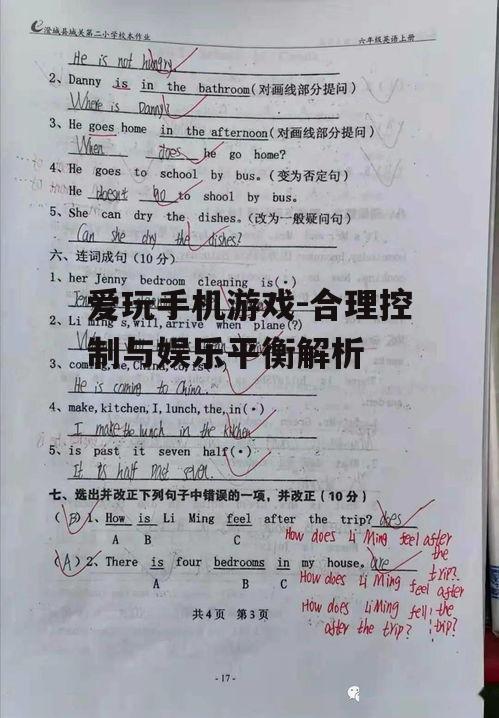 澄城县城关第二小学校本作业 六年级英语上册
He is not hungry
2、Danny is in the bathroom(对画线部分提问)
Where is Danny?
3、He goes home in the afternoon(对画线部分提问)
When does he go home?
4、He goes to school by bus。(变为否定句)
He doesn't go to shool by bus.
5、She can dry the dishes。(改为一般疑问句)
Can she dry the dishes?
六、连词成句(10分)
1、her Jenny bedroom cleaning is(·)
爱玩手机游戏-合理控
2、Li Ming's,will,arrive when plane(?)
制与娱乐平衡解析
He is coming to China.
4、make,kitchen,I,lunch,the,in(·)
I make the lunch in the kitchen
5、is past it seven half(·)
It is half past seven.
七、选出并改正下列句子中错误的一项,并改正(10分)
(B)1、How is Li Ming feel after the trip? does
A B C
How does Li Ming feel after the trip?
(A)2、There is four bedrooms in my house. are
A B C
How does Li Ming feel after
How does Li Ming fell the
after the trip? trip?
共4页 第3页
-17-